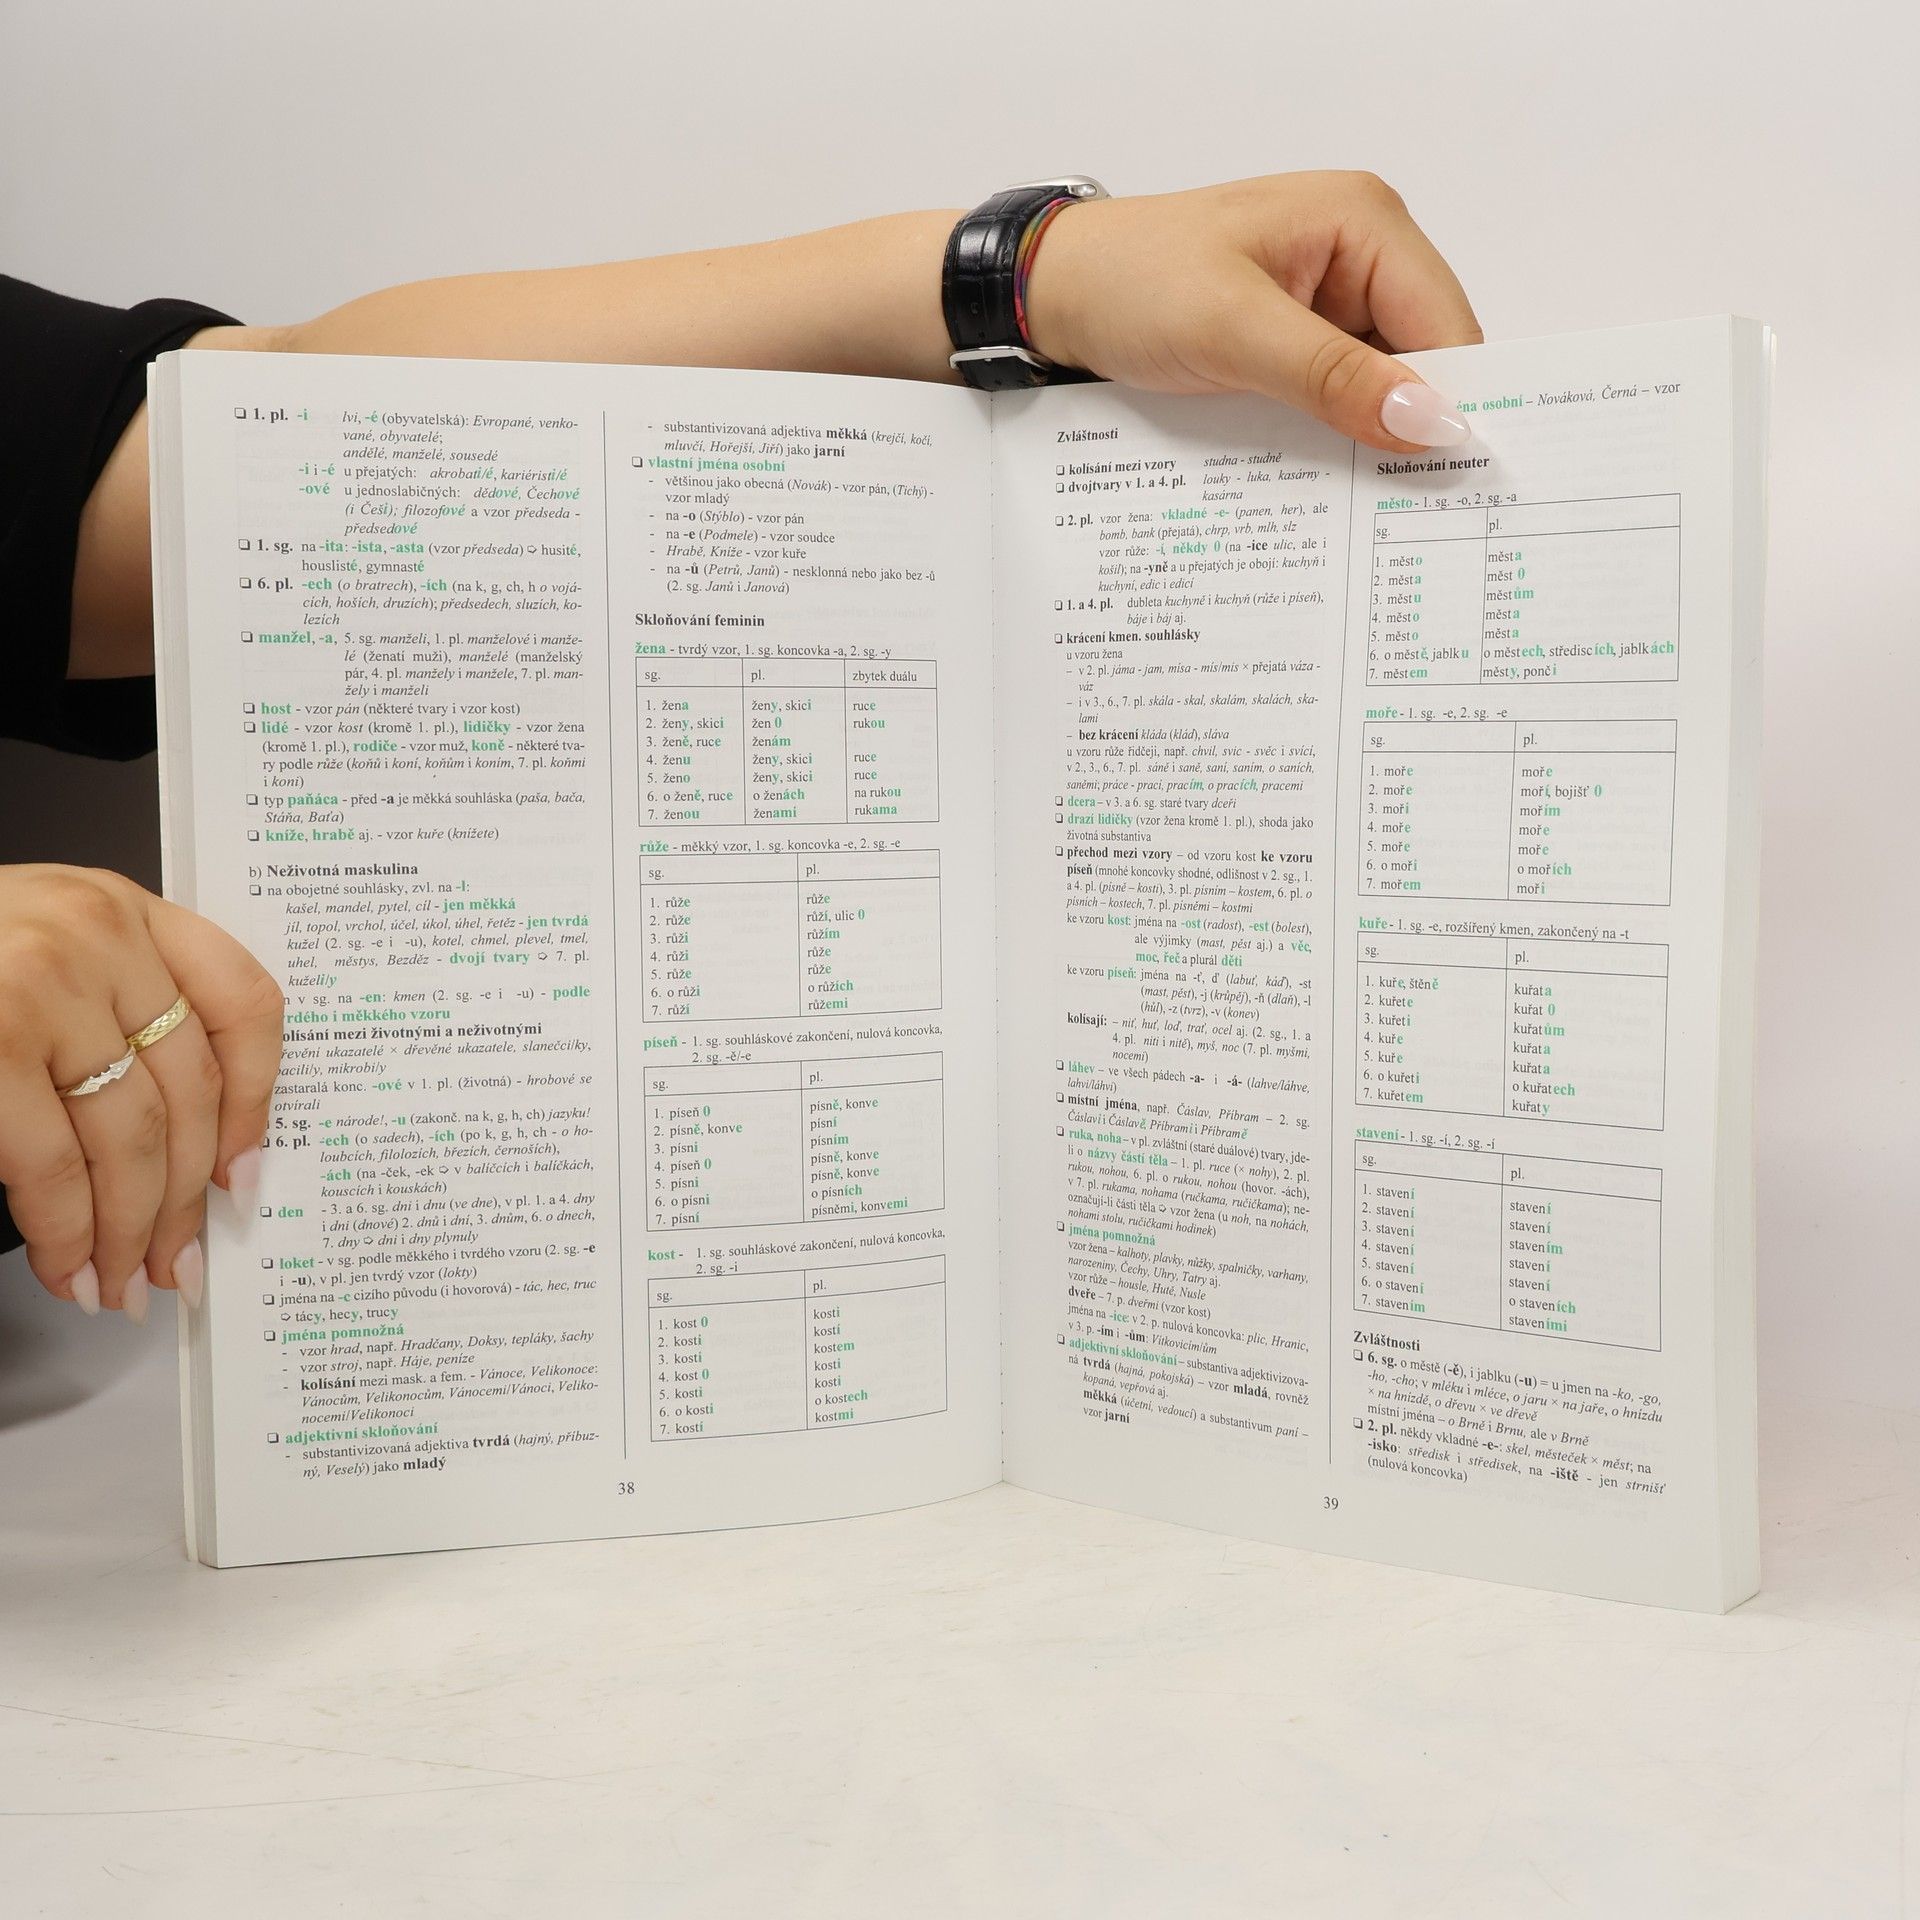 ❏ 1. pl. -i lvi, -é (obyvatelská): Evropané, venko-
vané, obyvatelé;
andělé, manželé, sousedé
-i i -é u přejatých: akrobati/é, kariéristi/é
-ové u jednoslabičných: dědové, Čechové
(i Češi); filozofové a vzor předseda -
předsedové
❏ 1. sg. na -ita: -ista, -asta (vzor předseda) ➪ husité,
houslisté, gymnasté
❏ 6. pl. -ech (o bratrech), -ích (na k, g, ch, h o vojá-
cích, hoších, druzích); předsedech, sluzích, ko-
lezích
❏ manžel, -a, 5. sg. manželi, 1. pl. manželové i manže-
lé (ženatí muži), manželé (manželský
pár, 4. pl. manžely i manžele, 7. pl. man-
žely i manželi
❏ host - vzor pán (některé tvary i vzor kost)
❏ lidé - vzor kost (kromě 1. pl.), lidičky - vzor žena
(kromě 1. pl.), rodiče - vzor muž, koně - některé tva-
ry podle růže (koňů i koní, koňům i koním, 7. pl. koňmi
i koni)
❏ typ paňáca - před -a je měkká souhláska (paša, bača,
Stáňa, Baťa)
❏ kníže, hrabě aj. - vzor kuře (knížete)
b) Neživotná maskulina
❏ na obojetné souhlásky, zvl. na -l:
kašel, mandel, pytel, cíl - jen měkká
jíl, topol, vrchol, účel, úkol, úhel, řetěz - jen tvrdá
kužel (2. sg. -e i -u), kotel, chmel, plevel, tmel,
uhel, městys, Bezděz - dvojí tvary ➪ 7. pl.
kuželi/y
v sg. na -en: kmen (2. sg. -e i -u) - podle
tvrdého i měkkého vzoru
kolísání mezi životnými a neživotnými
dřevění ukazatelé × dřevěné ukazatele, slanečci/ky,
bacili/y, mikrobi/y
zastaralá konc. -ové v 1. pl. (životná) - hrobové se
otvírali
❏ 5. sg. -e národe!, -u (zakonč. na k, g, h, ch) jazyku!
❏ 6. pl. -ech (o sadech), -ích (po k, g, h, ch - o ho-
loubcích, filolozích, březích, černoších),
-ách (na -ček, -ek ➪ v balíčcích i balíčkách,
kouscích i kouskách)
❏ den - 3. a 6. sg. dni i dnu (ve dne), v pl. 1. a 4. dny
i dni (dnové) 2. dnů i dní, 3. dnům, 6. o dnech,
7. dny ➪ dni i dny plynuly
❏ loket - v sg. podle měkkého i tvrdého vzoru (2. sg. -e
i -u), v pl. jen tvrdý vzor (lokty)
❏ jména na -c cizího původu (i hovorová) - tác, hec, truc
➪ tácy, hecy, trucy
❏ jména pomnožná
- vzor hrad, např. Hradčany, Doksy, tepláky, šachy
- vzor stroj, např. Háje, peníze
- kolísání mezi mask. a fem. - Vánoce, Velikonoce:
Vánocům, Velikonocům, Vánocemi/Vánoci, Veliko-
nocemi/Velikonoci
❏ adjektivní skloňování
- substantivizovaná adjektiva tvrdá (hajný, příbuz-
ný, Veselý) jako mladý
- substantivizovaná adjektiva měkká (krejčí, kočí,
mluvčí, Hořejší, Jiří) jako jarní
❏ vlastní jména osobní
- většinou jako obecná (Novák) - vzor pán, (Tichý) -
vzor mladý
- na -o (Stýblo) - vzor pán
- na -e (Podmele) - vzor soudce
- Hrabě, Kníže - vzor kuře
- na -ů (Petrů, Janů) - nesklonná nebo jako bez -ů
(2. sg. Janů i Janová)
Skloňování feminin
žena - tvrdý vzor, 1. sg. koncovka -a, 2. sg. -y
sg. pl. zbytek duálu
1. žena ženy, skici ruce
2. ženy, skici žen 0 rukou
3. ženě, ruce ženám
4. ženu ženy, skici ruce
5. ženo ženy, skici ruce
6. o ženě, ruce o ženách na rukou
7. ženou ženami rukama
růže - měkký vzor, 1. sg. koncovka -e, 2. sg. -e
sg. pl.
1. růže růže
2. růže růží, ulic 0
3. růži růžím
4. růži růže
5. růže růže
6. o růži o růžích
7. růží růžemi
píseň - 1. sg. souhláskové zakončení, nulová koncovka,
2. sg. -ě/-e
sg. pl.
1. píseň 0 písně, konve
2. písně, konve písní
3. písni písním
4. píseň 0 písně, konve
5. písni písně, konve
6. o písni o písních
7. písní písněmi, konvemi
kost - 1. sg. souhláskové zakončení, nulová koncovka,
2. sg. -i
sg. pl.
1. kost 0 kosti
2. kosti kostí
3. kosti kostem
4. kost 0 kosti
5. kosti kosti
6. o kosti o kostech
7. kostí kostmi
38
Zvláštnosti
❏ kolísání mezi vzory studna - studně
❏ dvojtvary v 1. a 4. pl. louky - luka, kasárny -
kasárna
❏ 2. pl. vzor žena: vkladné -e- (panen, her), ale
bomb, bank (přejatá), chrp, vrb, mlh, slz
vzor růže: -í, někdy 0 (na -ice ulic, ale i
košil); na -yně a u přejatých je obojí: kuchyň i
kuchyní, edic i edicí
❏ 1. a 4. pl. dubleta kuchyně i kuchyň (růže i píseň),
báje i báj aj.
❏ krácení kmen. souhlásky
u vzoru žena
– v 2. pl. jáma - jam, mísa - mis/mís × přejatá váza -
váz
– i v 3., 6., 7. pl. skála - skal, skalám, skalách, ska-
lami
– bez krácení kláda (klád), sláva
u vzoru růže řidčeji, např. chvil, svic - svěc i svící,
v 2., 3., 6., 7. pl. sáně i saně, saní, saním, o saních,
saněmi; práce - prací, pracím, o pracích, pracemi
❏ dcera – v 3. a 6. sg. staré tvary dceři
❏ drazí lidičky (vzor žena kromě 1. pl.), shoda jako
životná substantiva
❏ přechod mezi vzory – od vzoru kost ke vzoru
píseň (mnohé koncovky shodné, odlišnost v 2. sg., 1.
a 4. pl. (písně – kosti), 3. pl. písním – kostem, 6. pl. o
písních – kostech, 7. pl. písněmi – kostmi
ke vzoru kost: jména na -ost (radost), -est (bolest),
ale výjimky (mast, pěst aj.) a věc,
moc, řeč a plurál děti
ke vzoru píseň: jména na -ť, ď (labuť, káď), -st
(mast, pěst), -j (krůpěj), -ň (dlaň), -l
(hůl), -z (tvrz), -v (konev)
kolísají: – niť, huť, loď, trať, ocel aj. (2. sg., 1. a
4. pl. niti i nitě), myš, noc (7. pl. myšmi,
nocemi)
❏ láhev – ve všech pádech -a- i -á- (lahve/láhve,
lahvi/láhvi)
❏ místní jména, např. Čáslav, Příbram – 2. sg.
Čáslavi i Čáslavě, Příbrami i Příbramě
❏ ruka, noha – v pl. zvláštní (staré duálové) tvary, jde-
li o názvy částí těla – 1. pl. ruce (× nohy), 2. pl.
rukou, nohou, 6. pl. o rukou, nohou (hovor. -ách),
v 7. pl. rukama, nohama (ručkama, ručičkama); ne-
označují-li části těla ➪ vzor žena (u noh, na nohách,
nohami stolu, ručičkami hodinek)
❏ jména pomnožná
vzor žena – kalhoty, plavky, nůžky, spalničky, varhany,
narozeniny, Čechy, Uhry, Tatry aj.
vzor růže – housle, Hutě, Nusle
dveře – 7. p. dveřmi (vzor kost)
jména na -ice: v 2. p. nulová koncovka: plic, Hranic,
v 3. p. -ím i -ům: Vítkovicím/ům
❏ adjektivní skloňování – substantiva adjektivizova-
ná tvrdá (hajná, pokojská) – vzor mladá, rovněž
kopaná, vepřová aj.
měkká (účetní, vedoucí) a substantivum paní –
vzor jarní
éna osobní – Nováková, Černá – vzor
Skloňování neuter
město - 1. sg. -o, 2. sg. -a
sg. pl.
1. město města
2. města měst 0
3. městu městům
4. město města
5. město města
6. o městě, jablku o městech, střediscích, jablkách
7. městem městy, ponči
moře - 1. sg. -e, 2. sg. -e
sg. pl.
1. moře moře
2. moře moří, bojišť 0
3. moři mořím
4. moře moře
5. moře moře
6. o moři o mořích
7. mořem moři
kuře - 1. sg. -e, rozšířený kmen, zakončený na -t
sg. pl.
1. kuře, štěně kuřata
2. kuřete kuřat 0
3. kuřeti kuřatům
4. kuře kuřata
5. kuře kuřata
6. o kuřeti o kuřatech
7. kuřetem kuřaty
stavení - 1. sg. -í, 2. sg. -í
sg. pl.
1. stavení stavení
2. stavení stavení
3. stavení stavením
4. stavení stavení
5. stavení stavení
6. o stavení o staveních
7. stavením staveními
Zvláštnosti
❏ 6. sg. o městě (-ě), i jablku (-u) = u jmen na -ko, -go,
-ho, -cho; v mléku i mléce, o jaru × na jaře, o hnízdu
× na hnízdě, o dřevu × ve dřevě
místní jména – o Brně i Brnu, ale v Brně
❏ 2. pl. někdy vkladné -e-: skel, městeček × měst; na
-isko: středisk i středisek, na -iště - jen strnišť
(nulová koncovka)
39